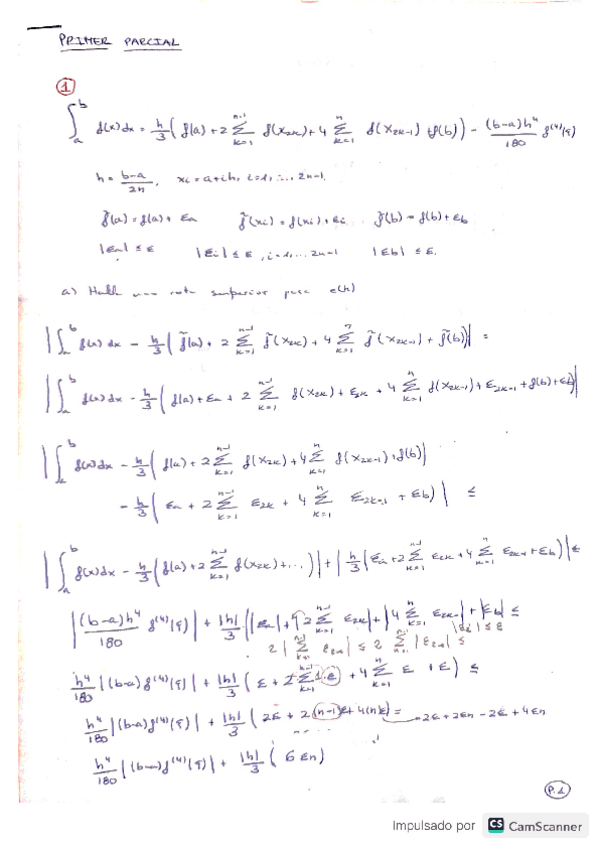 PRIMER PARCIAL
①
∫_a^b f(x)dx = h/3 ( f(a) + 2 Σ_{k=1}^{n-1} f(x_{2k}) + 4 Σ_{k=1}^{n} f(x_{2k-1}) + f(b) ) - (b-a)h⁴/180 f⁽⁴⁾(ξ)
h = (b-a)/2n, xi = a+ih, i=1, ..., 2n-1.
f̃(a) = f(a) + εa f̃(xi) = f(xi) + εi f̃(b) = f(b) + εb
|εa| ≤ ε |εi| ≤ ε, i=1,... 2n-1 |εb| ≤ ε.
a) Halla una cota superior para e(h)
|∫_a^b f(x) dx - h/3 ( f̃(a) + 2 Σ_{k=1}^{n-1} f̃(x_{2k}) + 4 Σ_{k=1}^{n} f̃(x_{2k-1}) + f̃(b) )| =
|∫_a^b f(x)dx - h/3 ( f(a) + εa + 2 Σ_{k=1}^{n-1} f(x_{2k}) + ε_{2k} + 4 Σ_{k=1}^{n} f(x_{2k-1}) + ε_{2k-1} + f(b) + εb )|
|∫_a^b f(x)dx - h/3 ( f(a) + 2 Σ_{k=1}^{n-1} f(x_{2k}) + 4 Σ_{k=1}^{n} f(x_{2k-1}) + f(b) )
- h/3 ( εa + 2 Σ_{k=1}^{n-1} ε_{2k} + 4 Σ_{k=1}^{n} ε_{2k-1} + εb ) | ≤
|∫_a^b f(x)dx - h/3 ( f(a) + 2 Σ_{k=1}^{n-1} f(x_{2k}) + ... )| + | h/3 ( εa + 2 Σ_{k=1}^{n-1} ε_{2k} + 4 Σ_{k=1}^{n} ε_{2k-1} + εb )| ≤
|(b-a)h⁴/180 f⁽⁴⁾(ξ)| + |h|/3 ( |εa| + |2 Σ_{k=1}^{n-1} ε_{2k}| + |4 Σ_{k=1}^{n} ε_{2k-1}| + |εb| ≤
|εi| ≤ ε
2 | Σ_{k=1}^{n-1} ε_{2k} | ≤ 2 Σ_{k=1}^{n-1} |ε_{2k}| ≤
h⁴/180 |(b-a) f⁽⁴⁾(ξ)| + |h|/3 ( ε + 2 Σ_{k=1}^{n-1} 1·ε + 4 Σ_{k=1}^{n} ε + ε ) ≤
h⁴/180 |(b-a) f⁽⁴⁾(ξ)| + |h|/3 ( 2ε + 2(n-1)ε + 4(n)ε ) = 2ε + 2εn - 2ε + 4εn
h⁴/180 |(b-a) f⁽⁴⁾(ξ)| + |h|/3 ( 6εn )
P.1
Impulsado por CS CamScanner